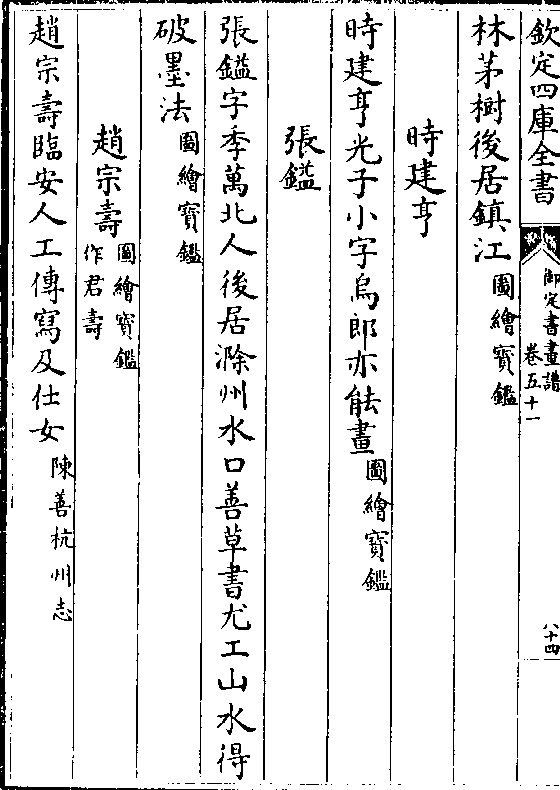 欽定四庫全書
御定書畫譜
卷五十一
八十四
林茅樹後居鎮江圖繪寶鑑
時建亨
時建亨光子小字烏郎亦能畫圖繪寶鑑
張鎰
張鎰字季萬北人後居滁州水口善草書尤工山水得
破墨法圖繪寶鑑
趙宗壽圖繪寶鑑作君壽
趙宗壽臨安人工傳寫及仕女陳善杭州志